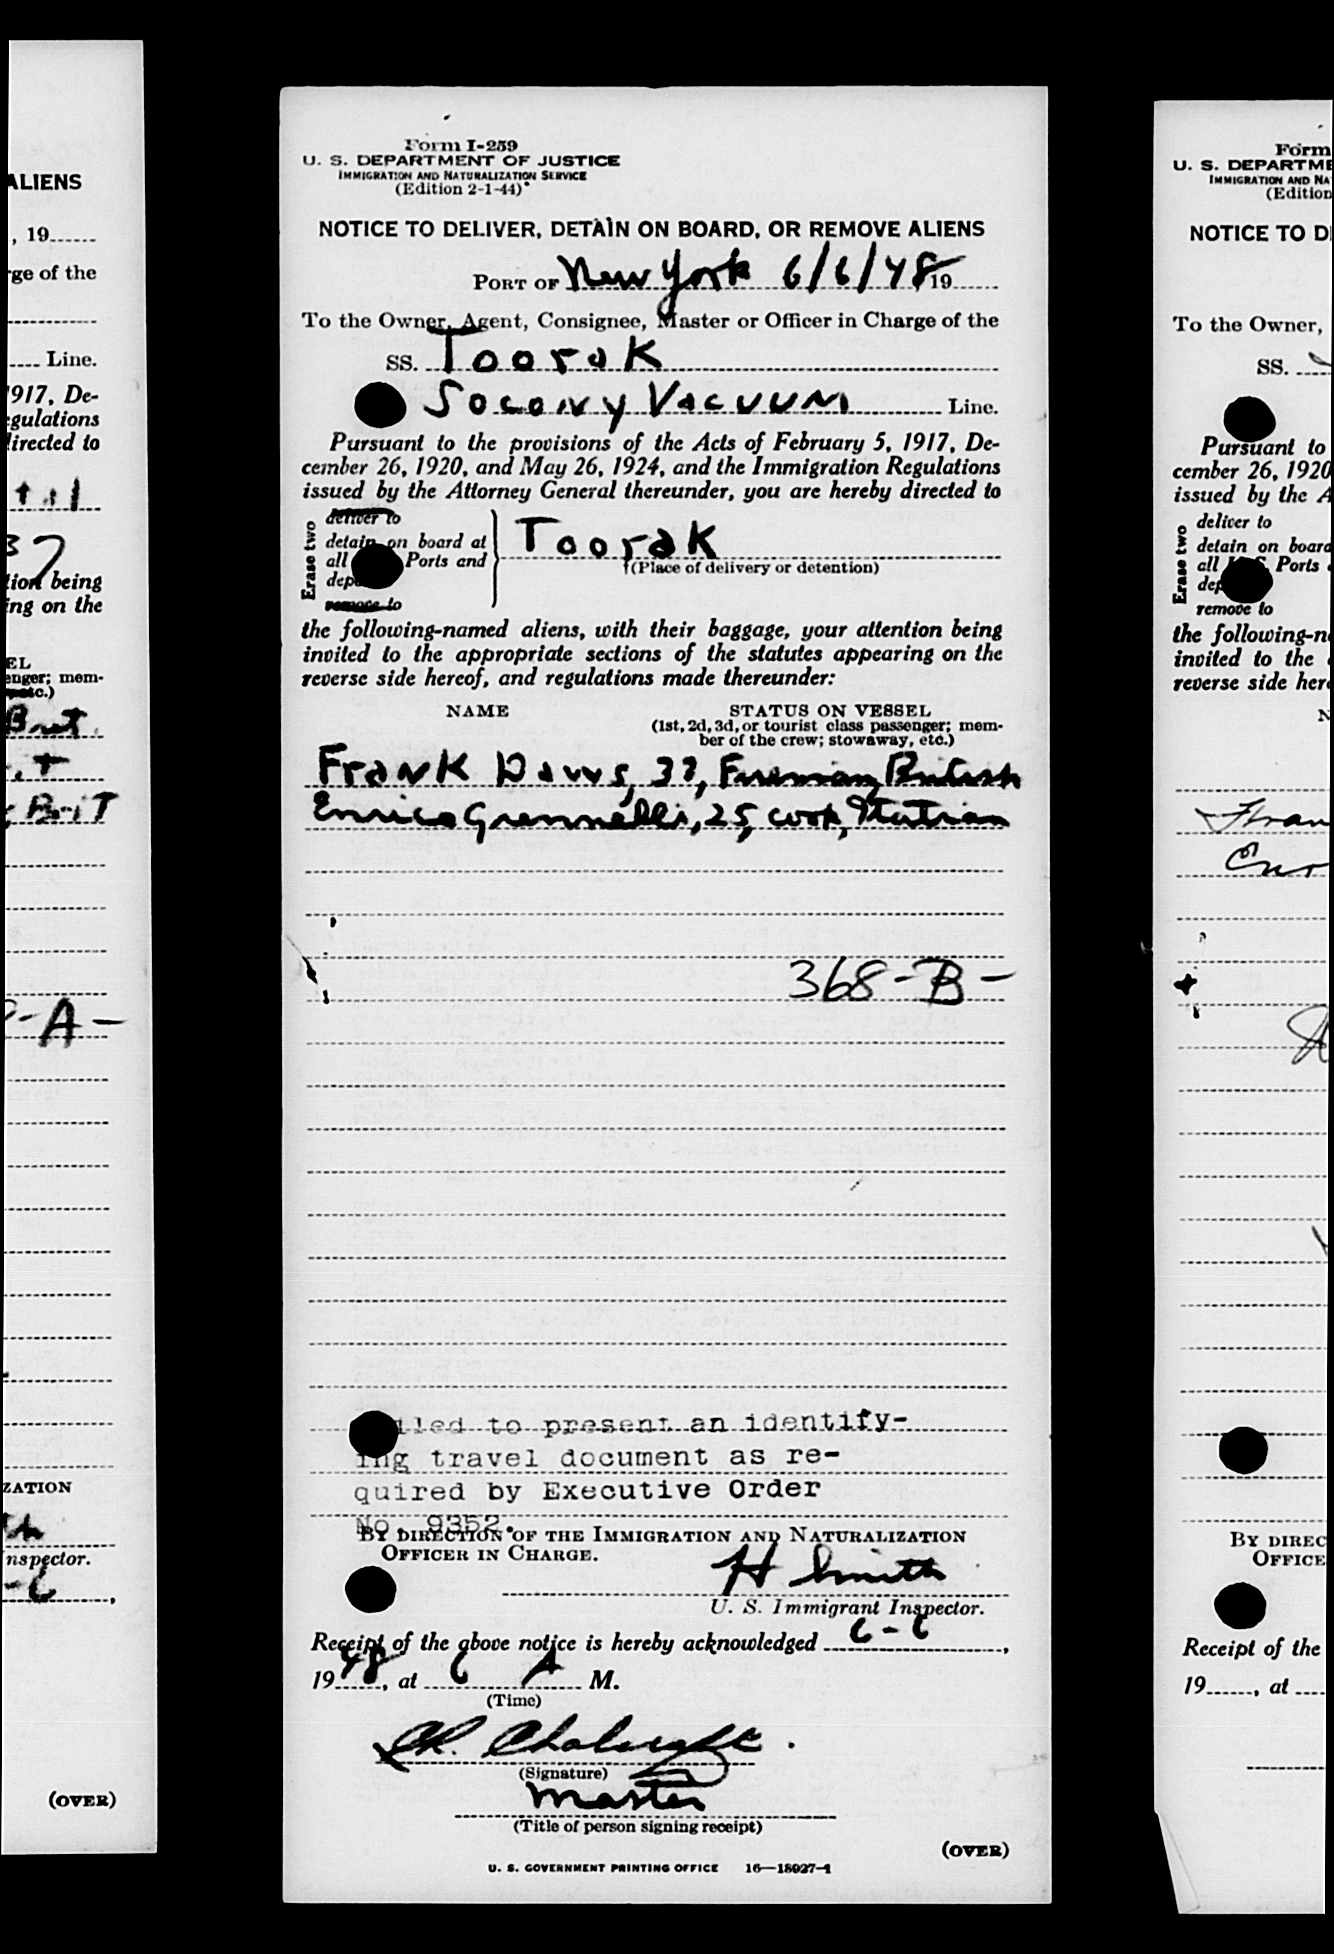 ALIENS
, 19
ge of the
Line.
1917, De-
egulations
directed to
37
tion being
ing on the
EL
enger; mem-
etc.)
Brit
Brit
-A-
ZATION
nspector.
-6
(OVER)
Form I-259
U. S. DEPARTMENT OF JUSTICE
IMMIGRATION AND NATURALIZATION SERVICE
(Edition 2-1-44)
NOTICE TO DELIVER, DETAIN ON BOARD, OR REMOVE ALIENS
PORT OF New York 6/6/48 19
To the Owner, Agent, Consignee, Master or Officer in Charge of the
SS. Toorak
Socony Vacuum Line.
Pursuant to the provisions of the Acts of February 5, 1917, De-
cember 26, 1920, and May 26, 1924, and the Immigration Regulations
issued by the Attorney General thereunder, you are hereby directed to
Erase two
deliver to
detain on board at
all Ports and
dep
remove to
Toorak
(Place of delivery or detention)
the following-named aliens, with their baggage, your attention being
invited to the appropriate sections of the statutes appearing on the
reverse side hereof, and regulations made thereunder:
NAME STATUS ON VESSEL
(1st, 2d, 3d, or tourist class passenger; mem-
ber of the crew; stowaway, etc.)
Frank Davis, 33, Fireman, British
Enrico Grennelli, 25, cook, Italian
368-B-
iled to present an identify-
ing travel document as re-
quired by Executive Order
No. 9352.
BY DIRECTION OF THE IMMIGRATION AND NATURALIZATION
OFFICER IN CHARGE.
H Smith
U. S. Immigrant Inspector.
Receipt of the above notice is hereby acknowledged 6-6,
1948, at 6 A M.
(Time)
(Signature)
Master
(Title of person signing receipt)
(OVER)
U. S. GOVERNMENT PRINTING OFFICE 16—18927-1
Form
U. S. DEPARTME
IMMIGRATION AND NA
(Edition
NOTICE TO D
To the Owner,
SS.
Pursuant to
cember 26, 1920
issued by the A
Erase two
deliver to
detain on board
all Ports
dep
remove to
the following-n
invited to the
reverse side her
N
Fran
Enr
BY DIREC
OFFICE
Receipt of the
19, at